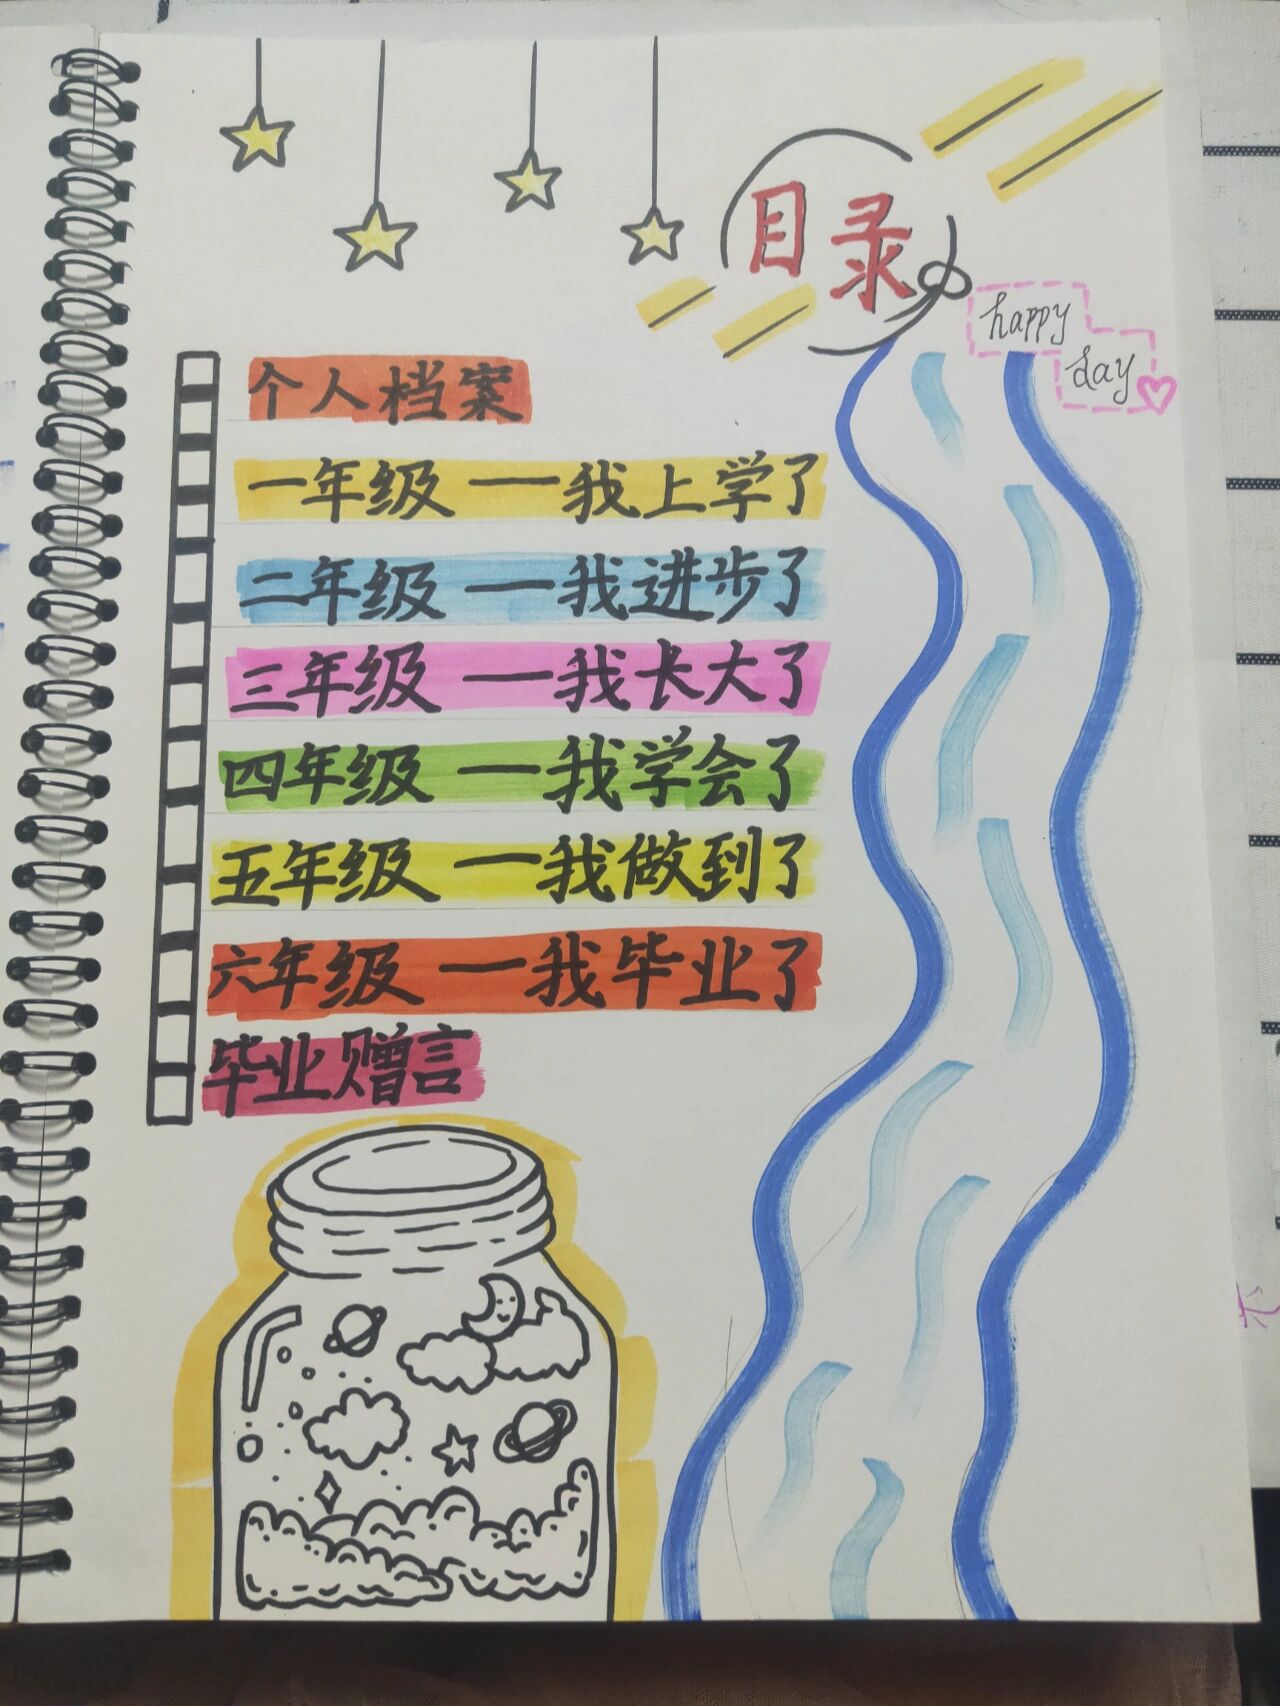 目录
happy
day
个人档案
一年级 — 我上学了
二年级 — 我进步了
三年级 — 我长大了
四年级 — 我学会了
五年级 — 我做到了
六年级 — 我毕业了
毕业赠言